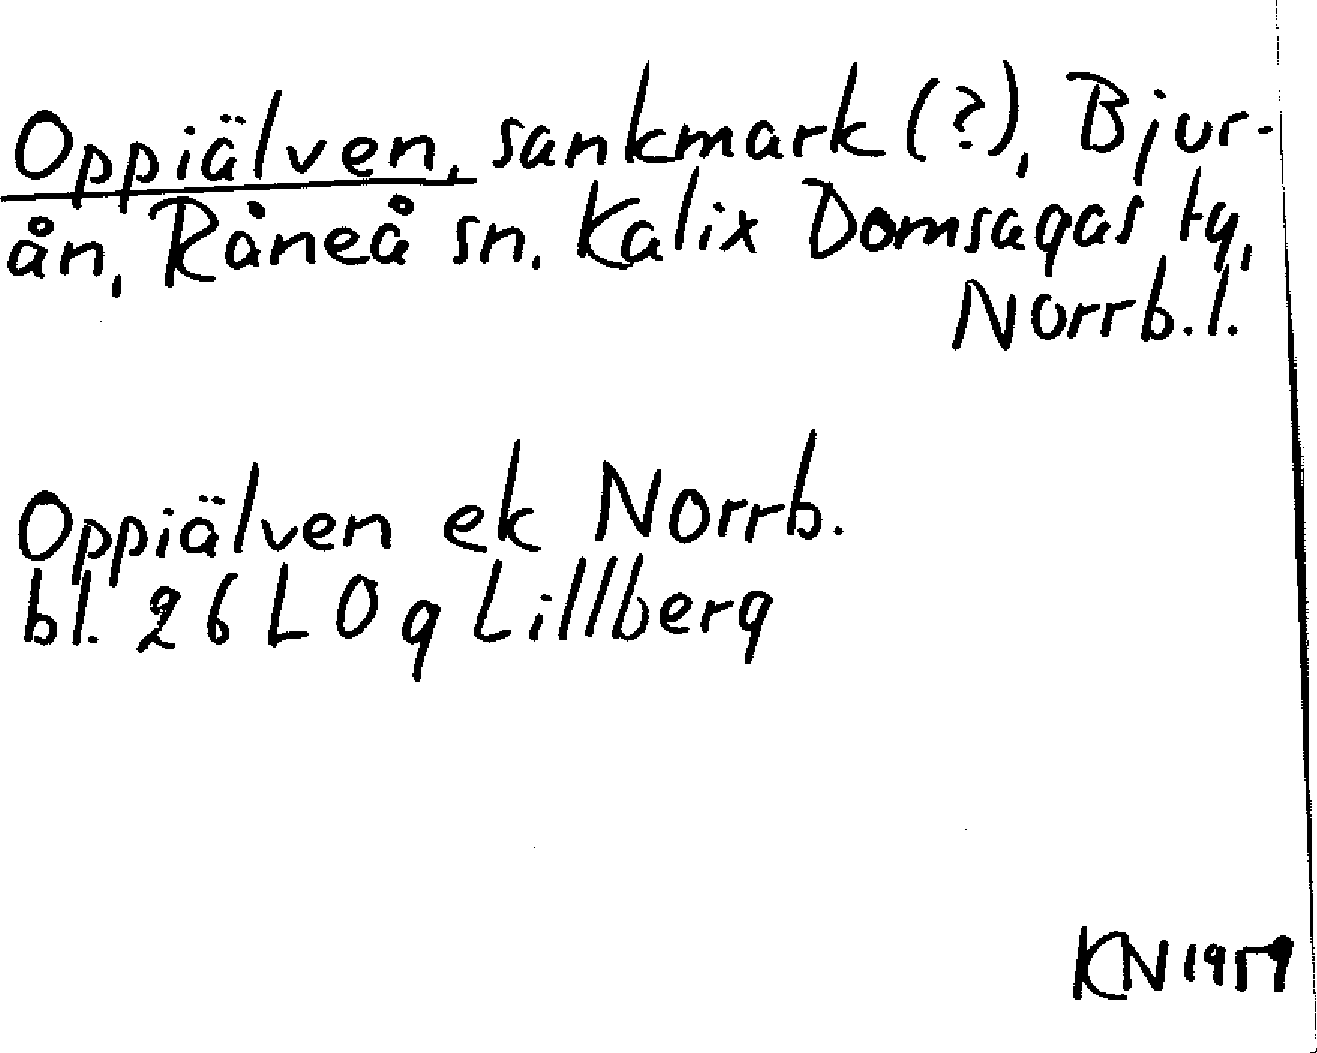 Oppiälven, sankmark (?), Bjur-
ån, Råneå sn. Kalix Domsagas tg,
Norrb. l.
Oppiälven ek Norrb.
bl. 26 L 0 g Lillberg
KN 1959